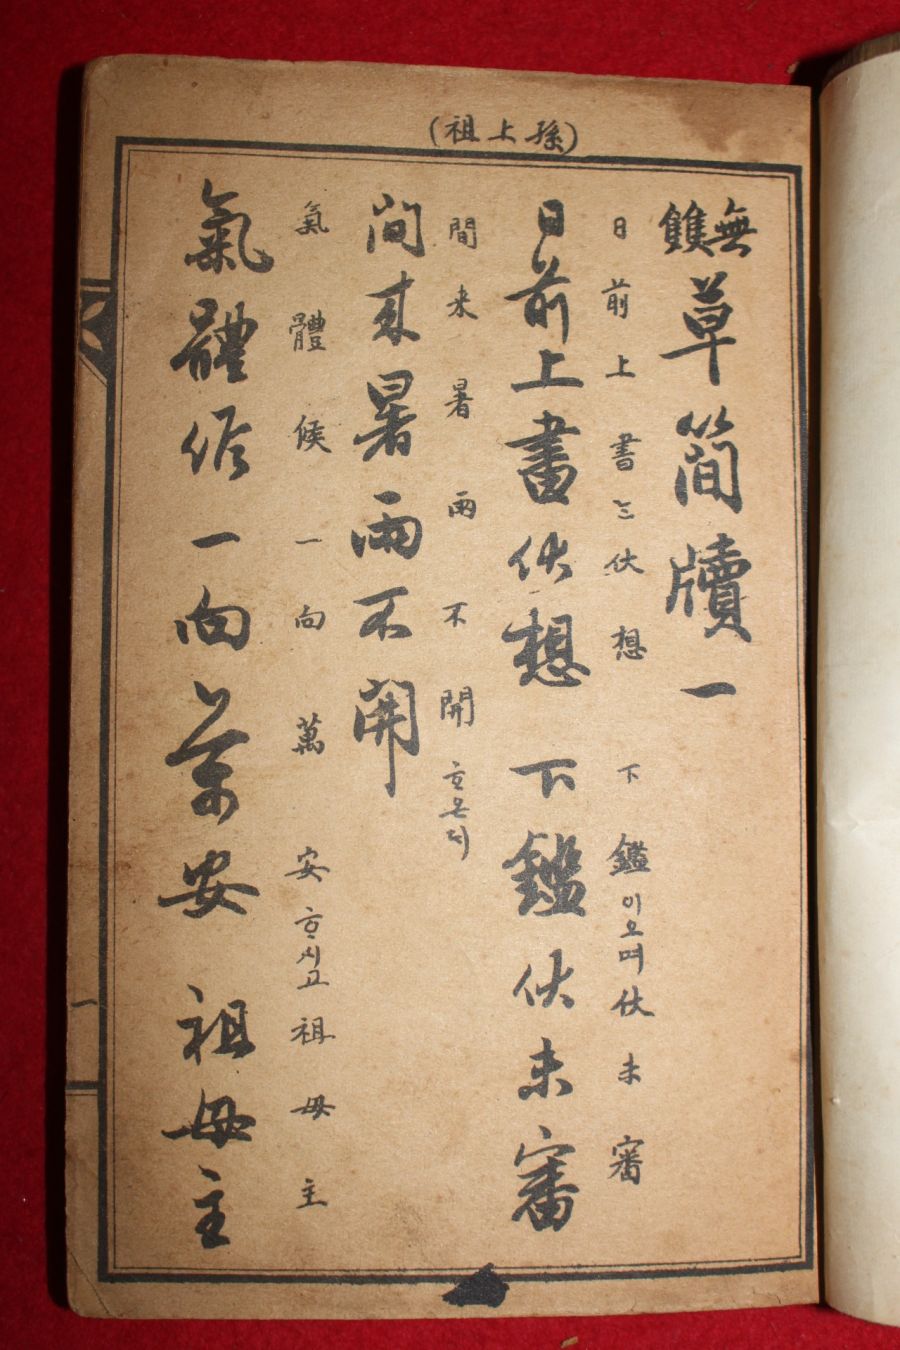 (祖上孫)
無雙
草簡牘一
日前上書는伏想 下鑑이오며伏未審
日前上書伏想 下鑑伏未審
間来暑雨不開호온디
间来暑雨不開
氣體候一向萬 安호시고祖母主
氣體候一向萬安 祖母主
一